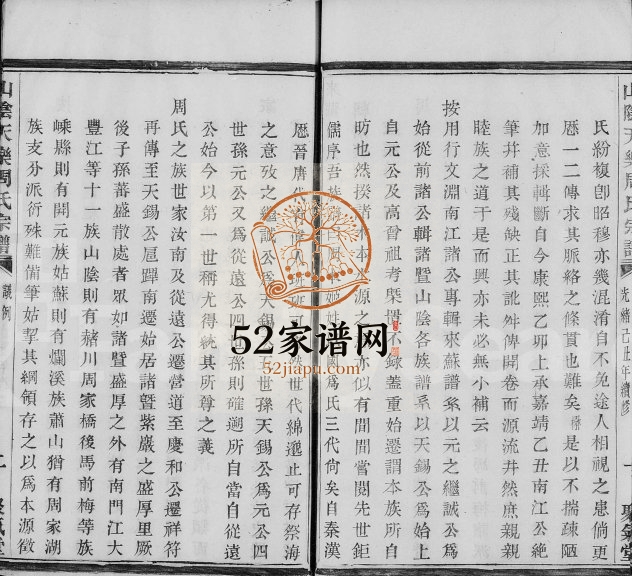 山陰天樂周氏宗譜
光緒己丑年續修
氏紛複卽昭穆亦幾混淆自不免途人相視之患倘更
歷一二傳求其脈絡之條貫也難矣 是以不揣疎陋
如意採輯斷自今康熙乙卯上承嘉靖乙丑南江公絶
筆幷補其殘缺正其訛舛俾開卷而源流井然庶親親
睦族之道于是而興亦未必無小補云
按用行文淵南江諸公專輯來蘇譜系以元之繼誠公爲
始從前諸公輯諸暨山陰各族譜系以天錫公爲始上
自元公及高曾祖考槩 不錄蓋重始遷謂本族所自
昉也然揆諸 本 源之 亦似有間間嘗閱先世鉅
儒序吾族 爲氏三代尙矣自秦漢
歷晉唐代有 人 班班可 然世代綿邈止可存祭海
之意攷之繼誠公爲天錫 世孫天錫公爲元公四
世孫元公又爲從遠公四 孫則確遡所自當自從遠
公始今以第一世稱尤得統其所尊之義
周氏之族世家汝南 從遠公遷營道至慶和公遷祥符
再傳至天錫公扈蹕南遷始居諸暨紫巖之盛厚里厥
後子孫蕃盛散處者眾如諸暨盛厚之外有南門江大
豐江等十一族山陰則有赭川周家橋後馬前梅等族
嵊縣則有開元族姑蘇則有爛溪族蕭山猶有周家湖
族支分派衍殊難備筆姑挈其綱領存之以爲本源徵
山陰天樂周氏宗譜
52家谱网
52jiapu.com